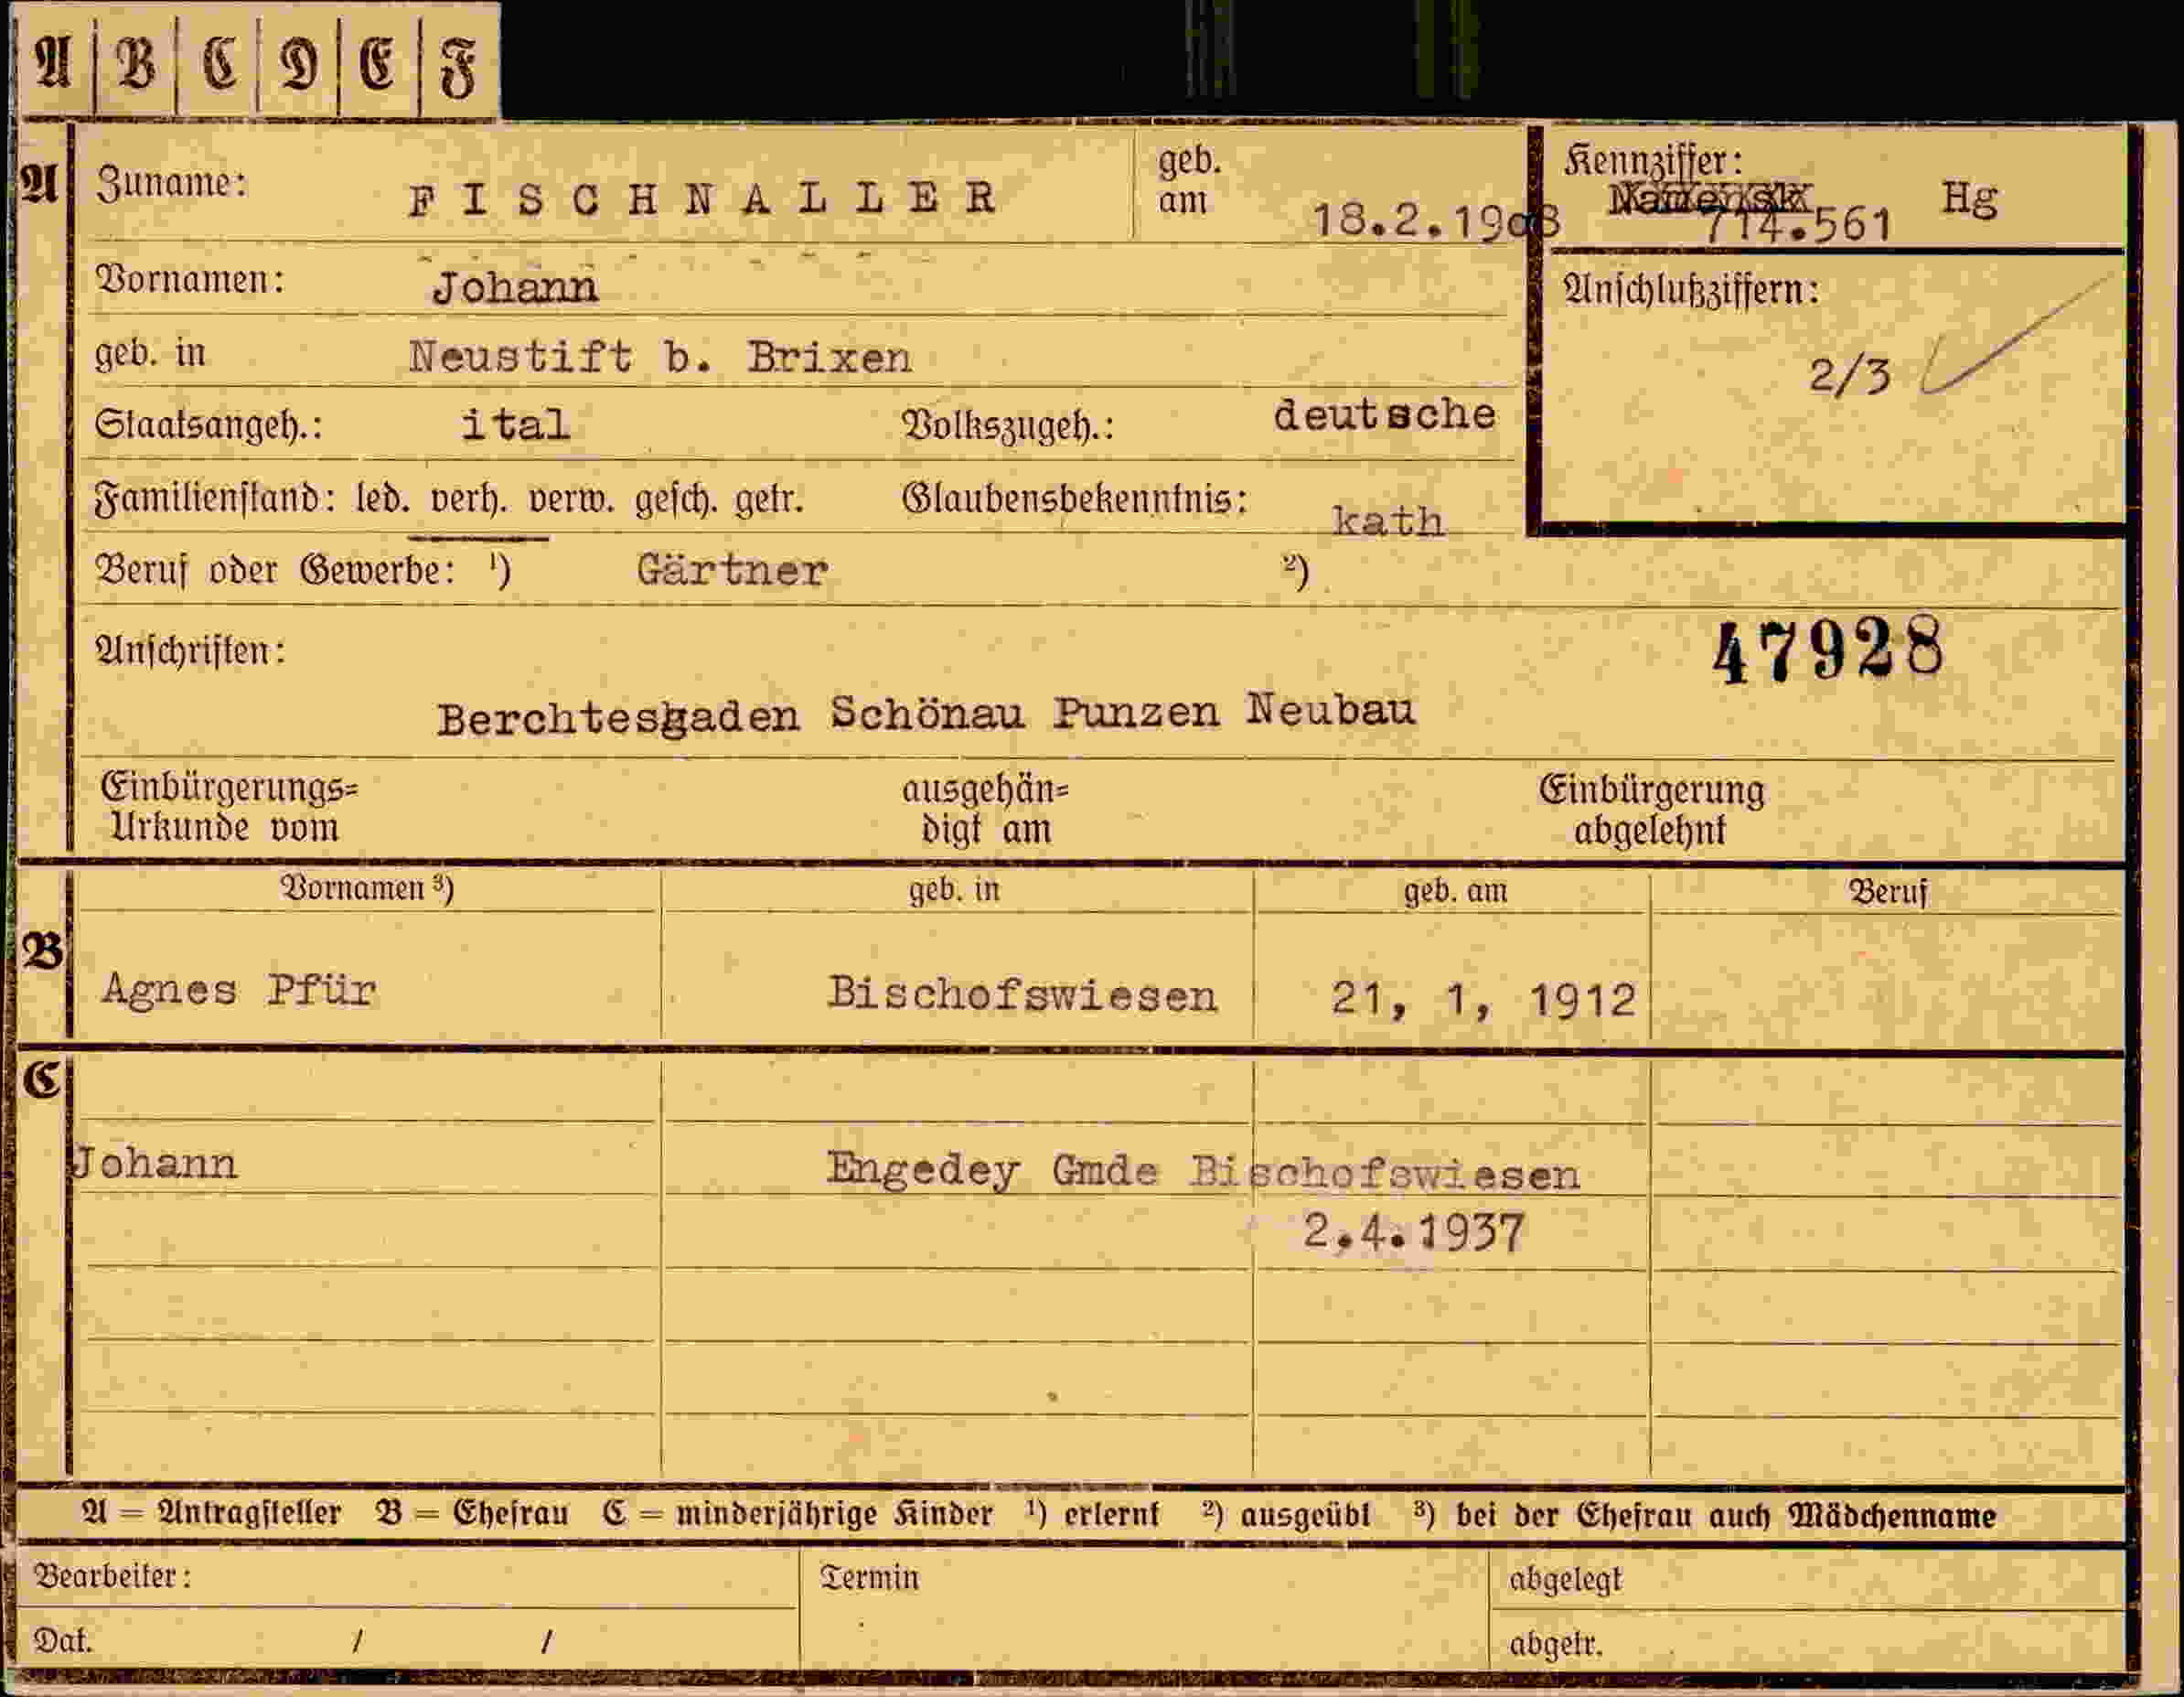 A B C D E F
A Zuname: FISCHNALLER geb. am 18.2.1908 Kennziffer: 714.561 Hg
Vornamen: Johann Anschlußziffern:
geb. in Neustift b. Brixen 2/3
Staatsangeh.: ital Volkszugeh.: deutsche
Familienstand: led. verh. verw. gesch. getr. Glaubensbekenntnis: kath
Beruf oder Gewerbe: ¹) Gärtner ²)
Anschriften: 47928
Berchtesgaden Schönau Punzen Neubau
Einbürgerungs= ausgehän= Einbürgerung
Urkunde vom digt am abgelehnt
Vornamen ³) geb. in geb. am Beruf
B Agnes Pfür Bischofswiesen 21, 1, 1912
C
Johann Engedey Gmde Bischofswiesen
2.4.1937
A = Antragsteller B = Ehefrau C = minderjährige Kinder ¹) erlernt ²) ausgeübt ³) bei der Ehefrau auch Mädchenname
Bearbeiter: Termin abgelegt
Dat. / / abgetr.